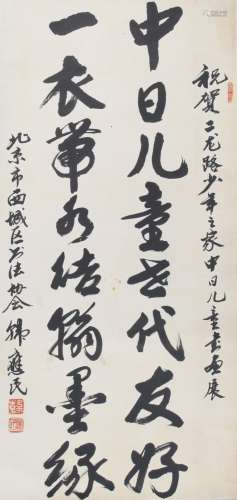 祝贺二龙路少年之家中日儿童书画展
中日儿童世代友好
一衣带水结翰墨缘
北京市西城区书法协会 韩应民